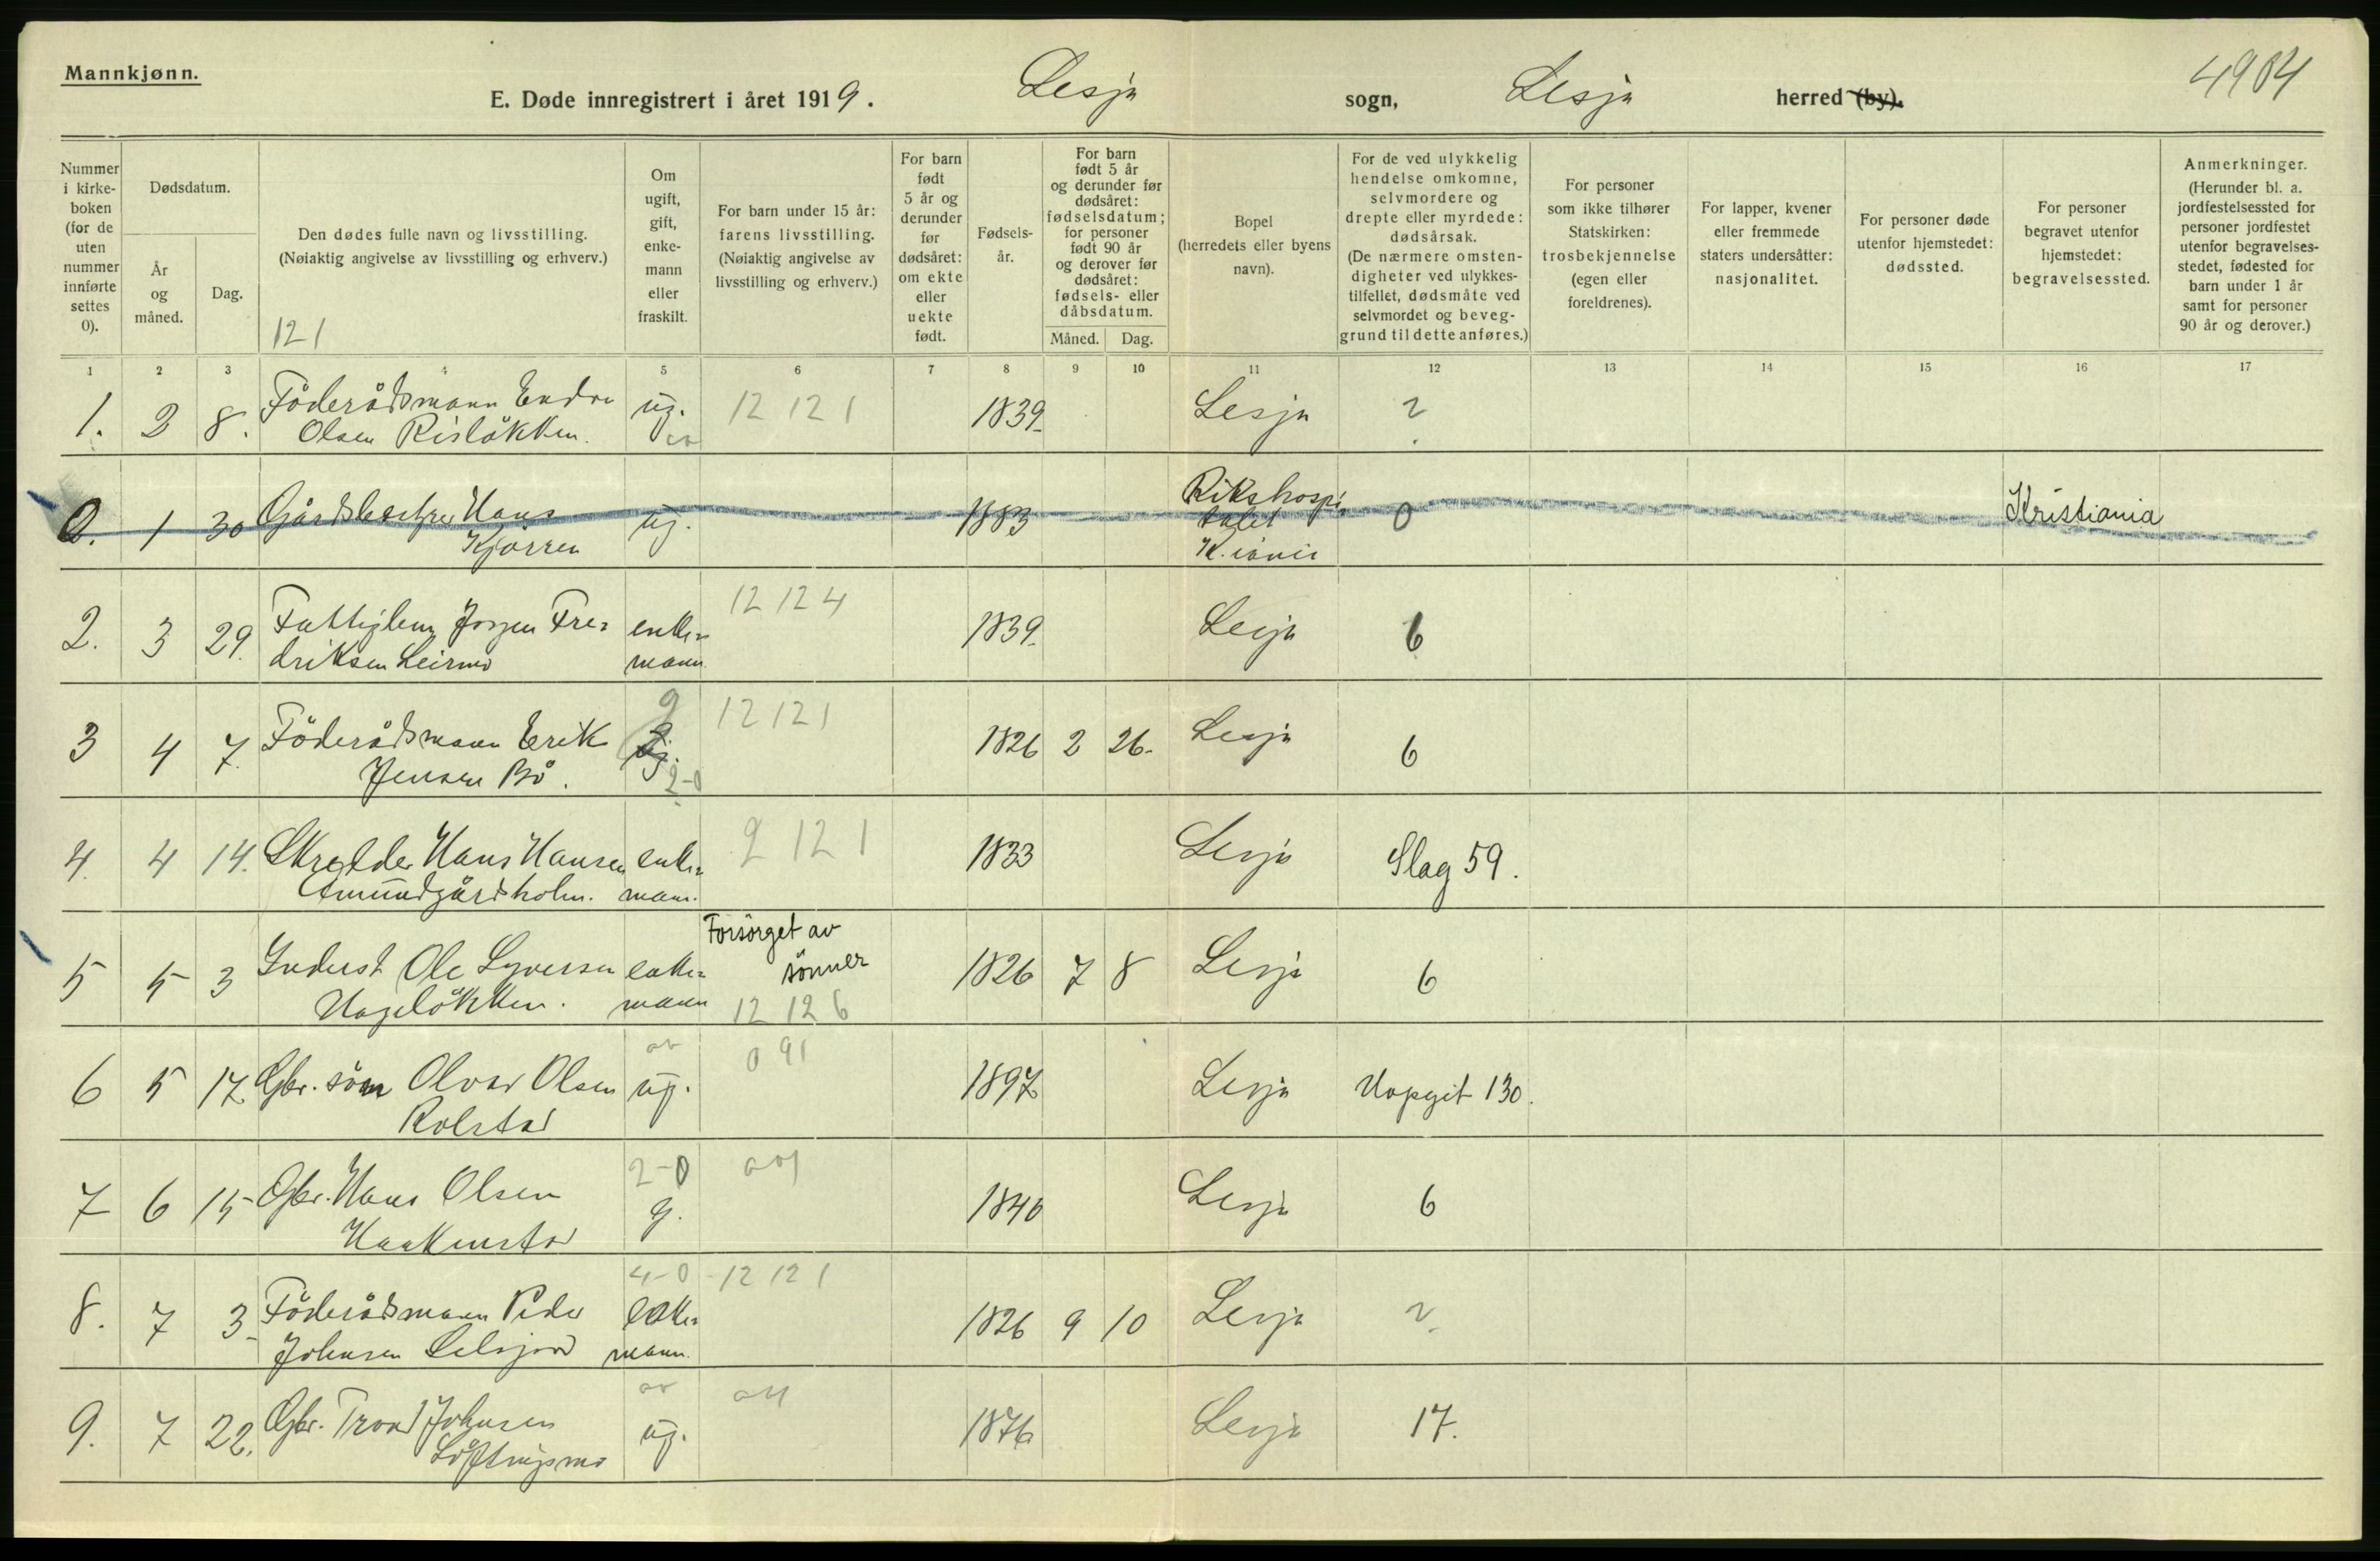 Mannkjønn.
E. Døde innregistrert i året 1919. Lesja sogn, Lesja herred (by). 4904
Nummer i kirke- boken (for de uten nummer innførte settes 0).
Dødsdatum.
År og måned.
Dag.
Den dødes fulle navn og livsstilling.
(Nøiaktig angivelse av livsstilling og erhverv.)
121
Om ugift, gift, enke- mann eller fraskilt.
For barn under 15 år: farens livsstilling. (Nøiaktig angivelse av livsstilling og erhverv.)
For barn født 5 år og derunder før dødsåret: om ekte eller uekte født.
Fødsels- år.
For barn født 5 år og derunder før dødsåret: fødselsdatum; for personer født 90 år og derover før dødsåret: fødsels- eller dåbsdatum.
Måned. Dag.
Bopel (herredets eller byens navn).
For de ved ulykkelig hendelse omkomne, selvmordere og drepte eller myrdede: dødsårsak. (De nærmere omsten- digheter ved ulykkes- tilfellet, dødsmåte ved selvmordet og beveg- grund til dette anføres.)
For personer som ikke tilhører Statskirken: trosbekjennelse (egen eller foreldrenes).
For lapper, kvener eller fremmede staters undersåtter: nasjonalitet.
For personer døde utenfor hjemstedet: dødssted.
For personer begravet utenfor hjemstedet: begravelsessted.
Anmerkninger. (Herunder bl. a. jordfestelsessted for personer jordfestet utenfor begravelses- stedet, fødested for barn under 1 år samt for personer 90 år og derover.)
1 2 3 4 5 6 7 8 9 10 11 12 13 14 15 16 17
1. 2 8. Föderådsmann Endre ug. 12 12 1 1839 Lesja 2
Olsen Rislökken.
0. 1 30 Gårdsbestyrer Hans ug. 1883 Rikshospi- 0 Kristiania
Kjörren talet
K.iania
2. 3 29. Fattiglem Jørgen Fre- enke- 12 12 4 1839 Lesja 6
driksen Leirmo mann
3 4 7. Föderådsmann Erik g 12 12 1 1826 2 26 Lesja 6
Jensen Bö. 2-0
4. 4 14. Skredder Hans Hansen enke- 2 12 1 1833 Lesja Slag 59.
Amundgårdsholm. mann.
5 5 3 Inderst Ole Syversen enke- Forsörget av 1826 7 8 Lesja 6
Hagelökken. mann sönner
12 12 6
6 5 17 Gbr. sön Olvar Olsen ug. 0 91 1897 Lesja Uopgit 130.
Rolstad
7 6 15 Gbr. Hans Olsen 2-0 g. 1846 Lesja 6
Haakenstad
8. 7 3 Föderådsmann Peder 4-0 enke- 12 12 1 1826 9 10 Lesja 2
Johnsen mann.
9. 7 22. Gbr. Trond Johnsen ug. 1876 Lesja 17.
Löftingsmo